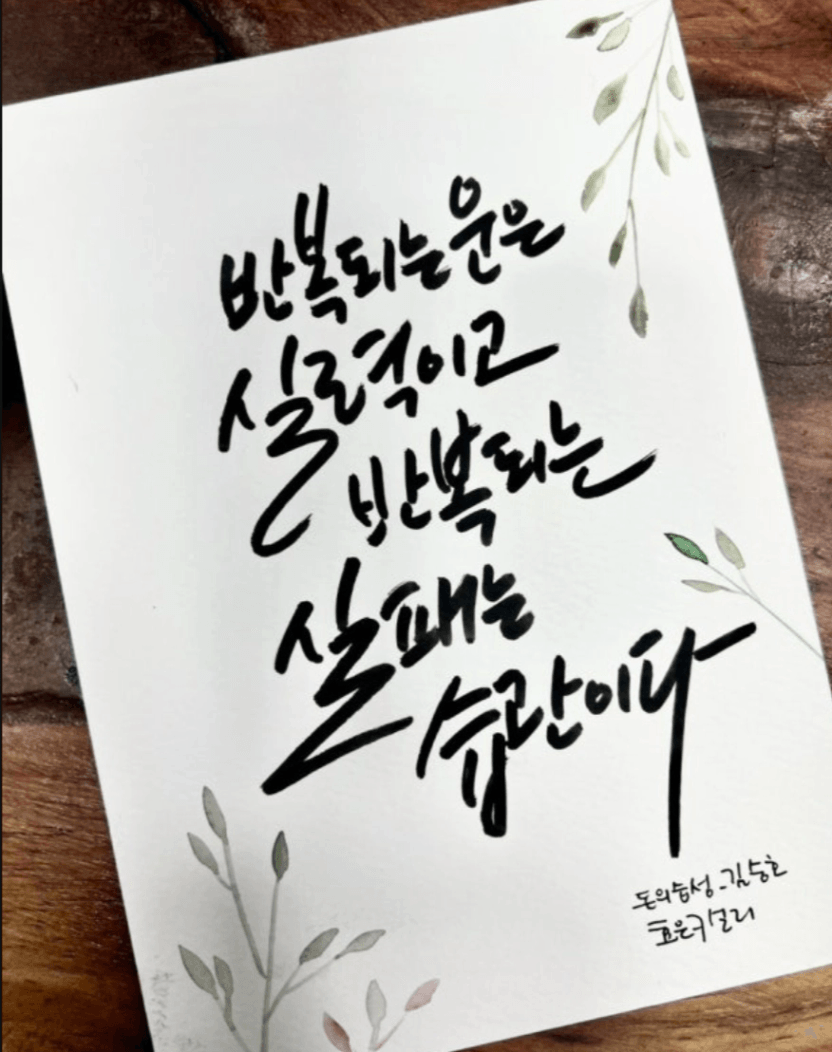 반복되는 운은
실력이고
반복되는
실패는
습관이다
돈의습성_김승호